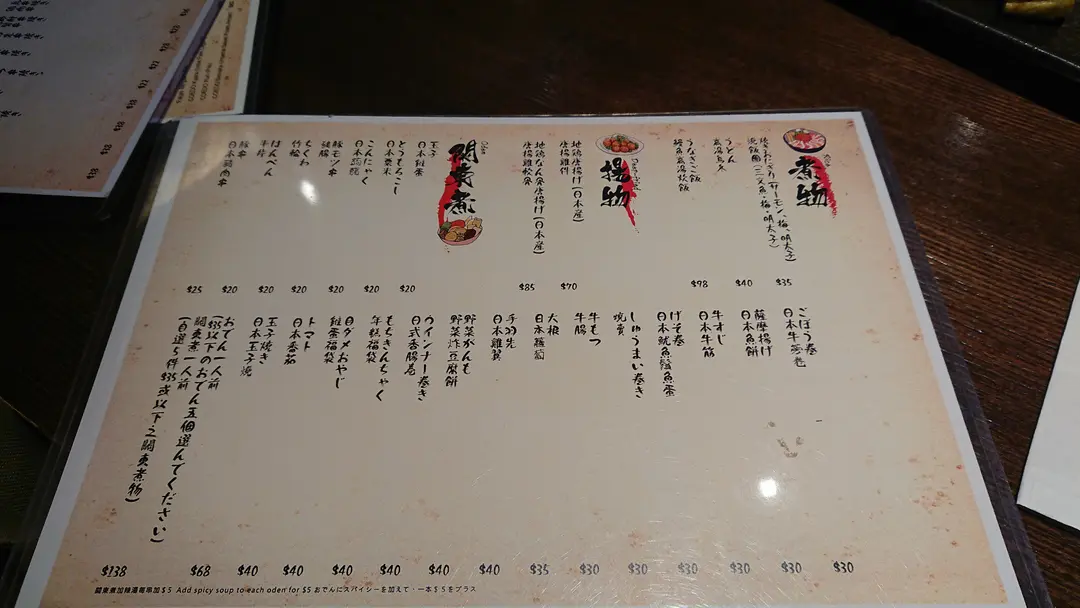 煮物
焼きおにぎり(サーモン、梅、明太子)
飯飯團(三文魚,梅,明太子)
$35
うどん
高湯烏冬
$40
うなぎご飯
鰻魚高湯炊飯
$98
揚物
地鶏唐揚げ(日本産)
唐揚雞件
$70
地鶏なん骨唐揚げ(日本産)
唐揚雞軟骨
$85
關東煮
玉子
日本雞蛋
$20
とうもろこし
日本粟米
$20
こんにゃく
日本蒟蒻
$20
豚モツ串
豬腸
$20
ちくわ
竹輪
$20
はんぺん
半片
$20
豚串
$25
ごぼう巻
日本牛蒡卷
$30
薩摩揚げ
日本魚餅
$30
牛すじ
日本牛筋
$30
げそ巻
日本魷魚鬚魚蛋
$30
しゅうまい巻き
燒賣
$30
牛もつ
牛腸
$30
大根
日本蘿蔔
$35
手羽先
日本雞翼
$40
野菜がんも
野菜炸豆腐餅
$40
ウインナー巻き
日式香腸卷
$40
もちきんちゃく
年糕福袋
$40
日ダメおやじ
雞蛋福袋
$40
トマト
日本番茄
$40
玉子焼き
日本玉子燒
$68
おでん一人前
($35以下のおでん五個選んでください)
關東煮一人前
(自選5件$35或以下之關東煮物)
$138
關東煮加辣湯每串加$5 Add spicy soup to each oden for $5 おでんにスパイシーを加えて・一本$5をプラス